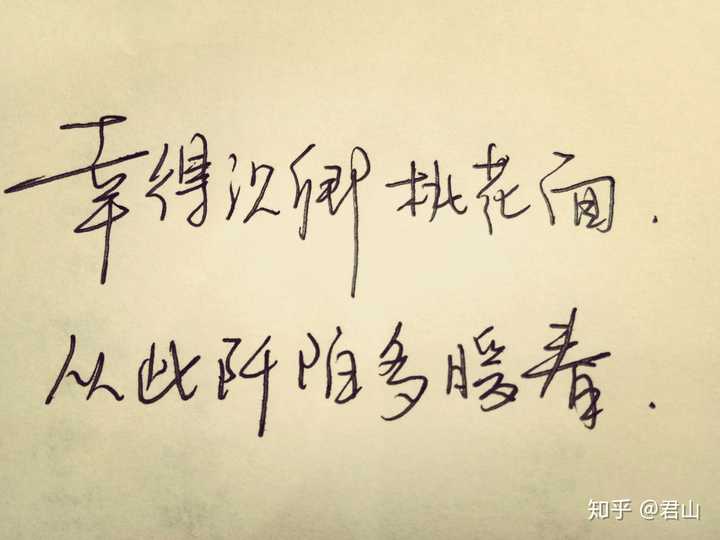 幸得识卿桃花面.
从此阡陌多暖春.
知乎 @君山